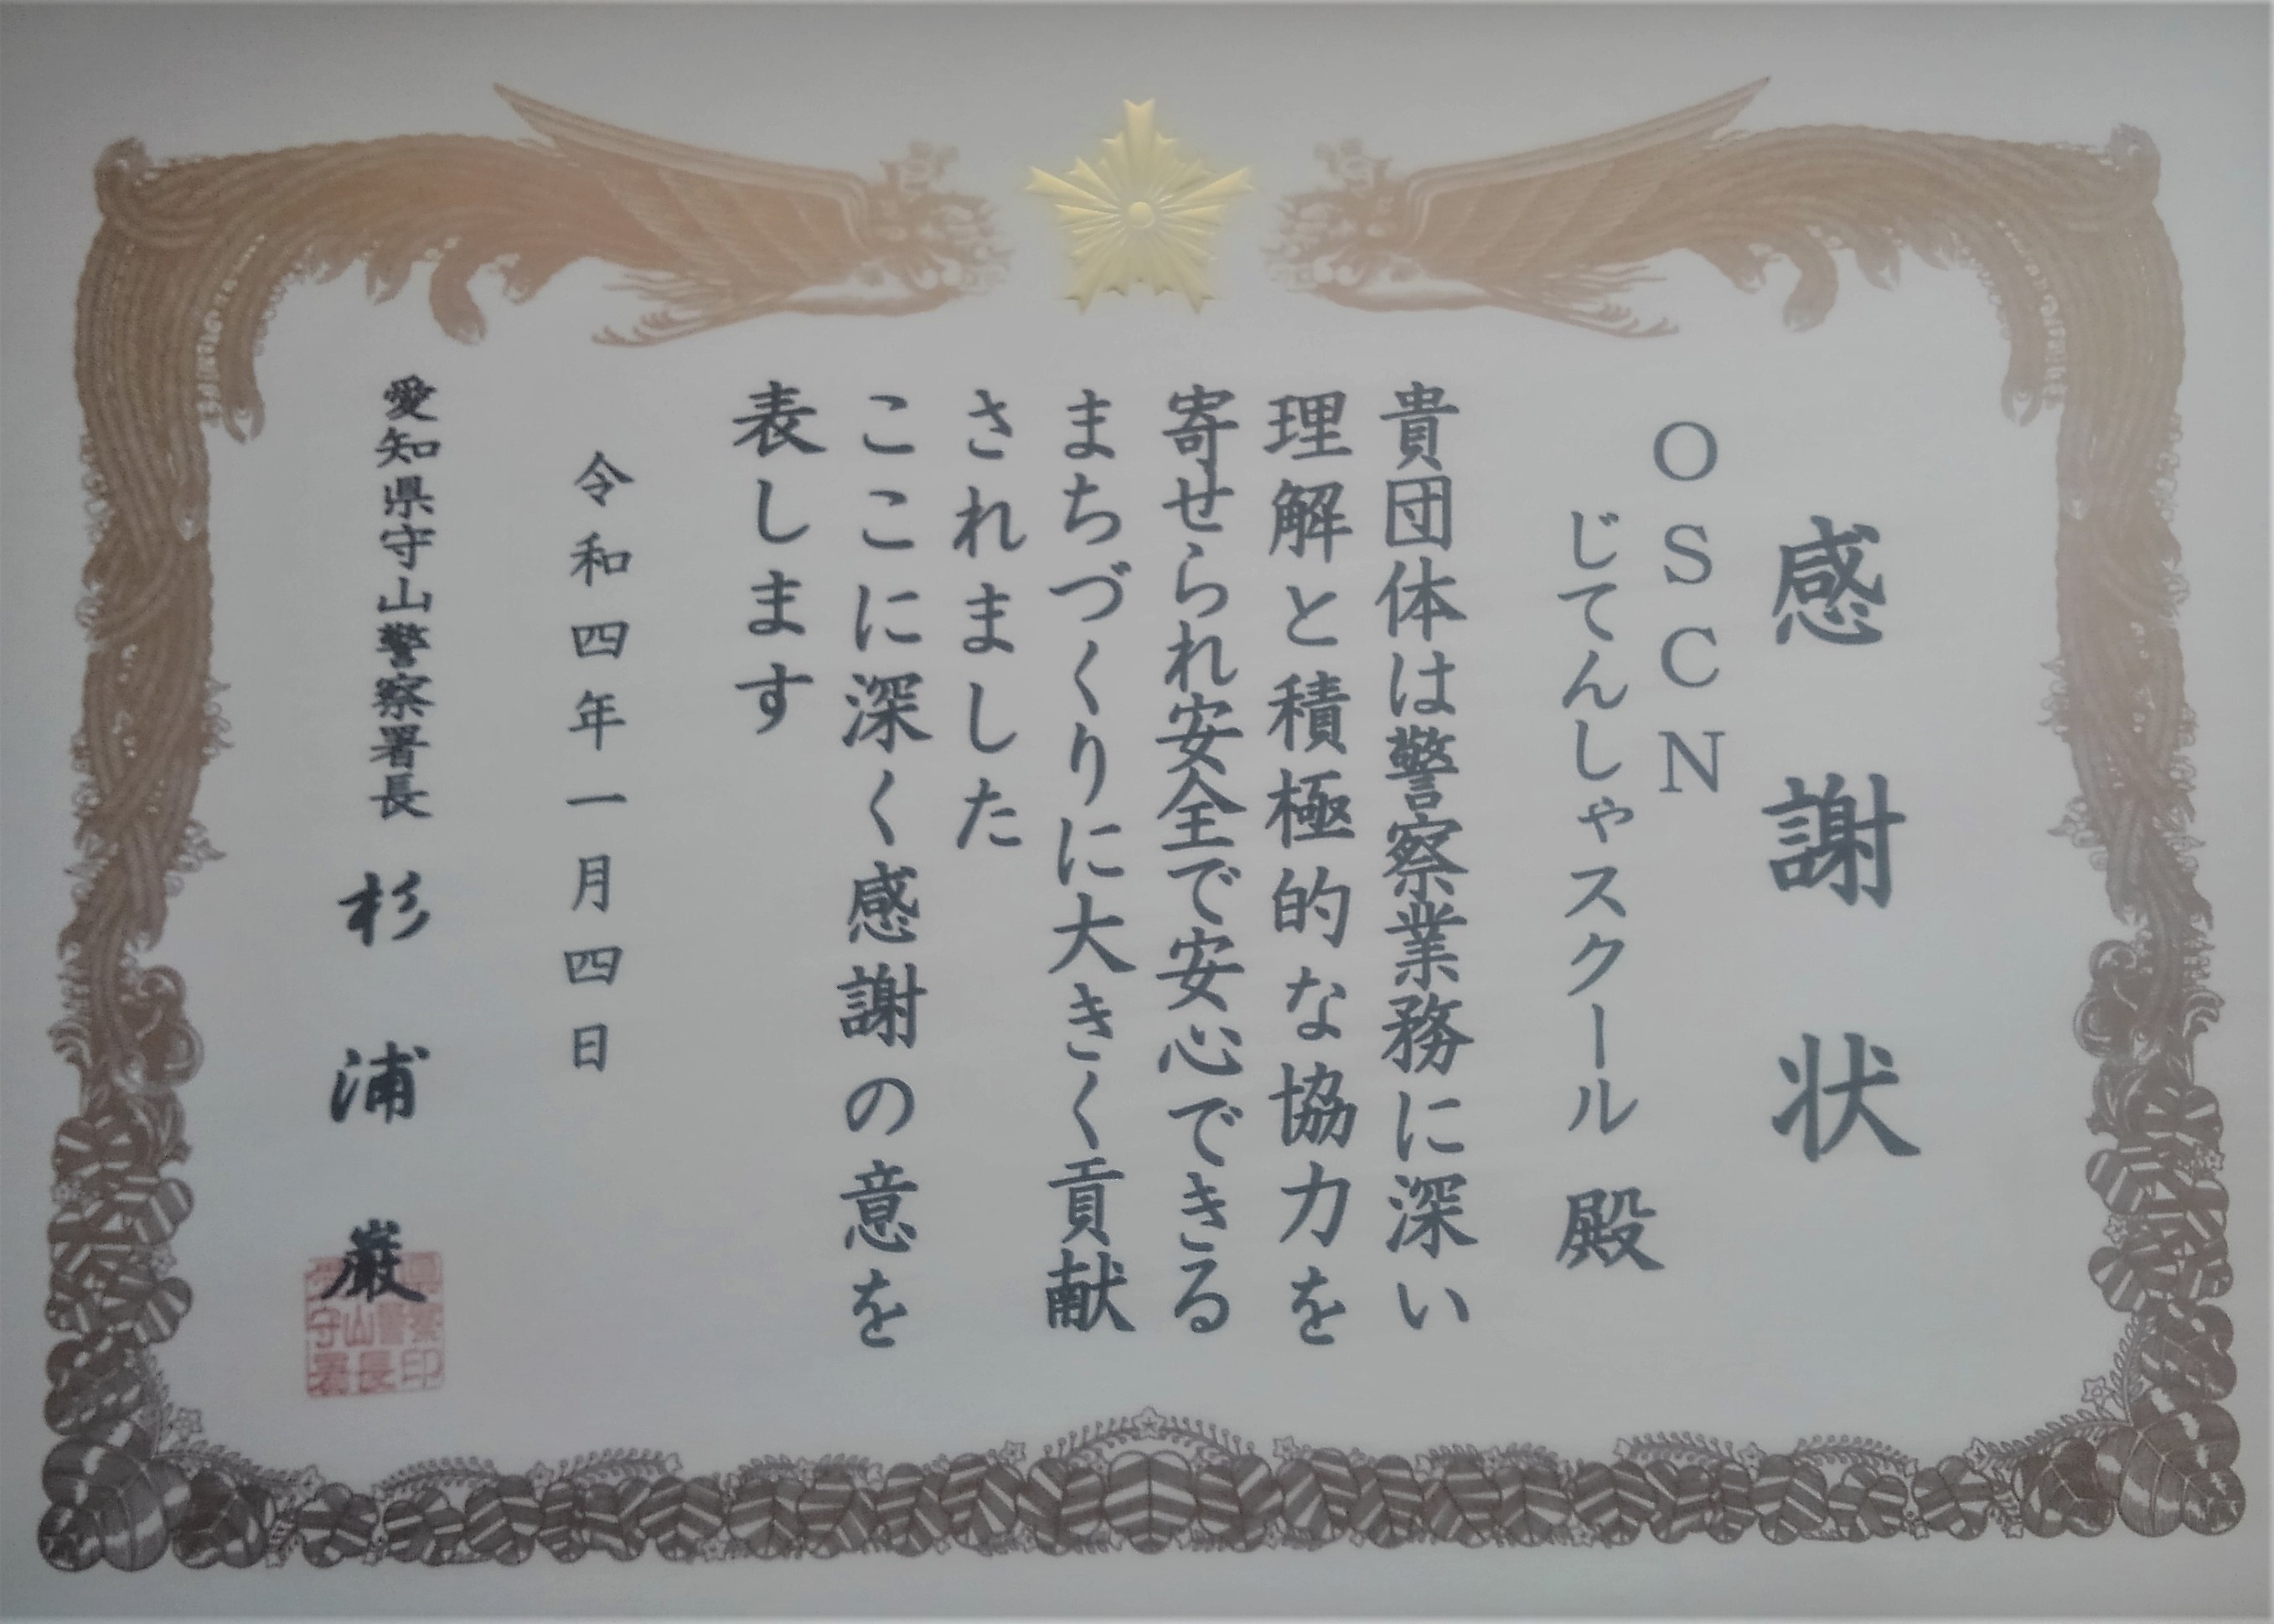 感謝状
OSCN
じてんしゃスクール 殿
貴団体は警察業務に深い
理解と積極的な協力を
寄せられ安全で安心できる
まちづくりに大きく貢献
されました
ここに深く感謝の意を
表します
令和四年一月四日
愛知県守山警察署長 杉浦巌